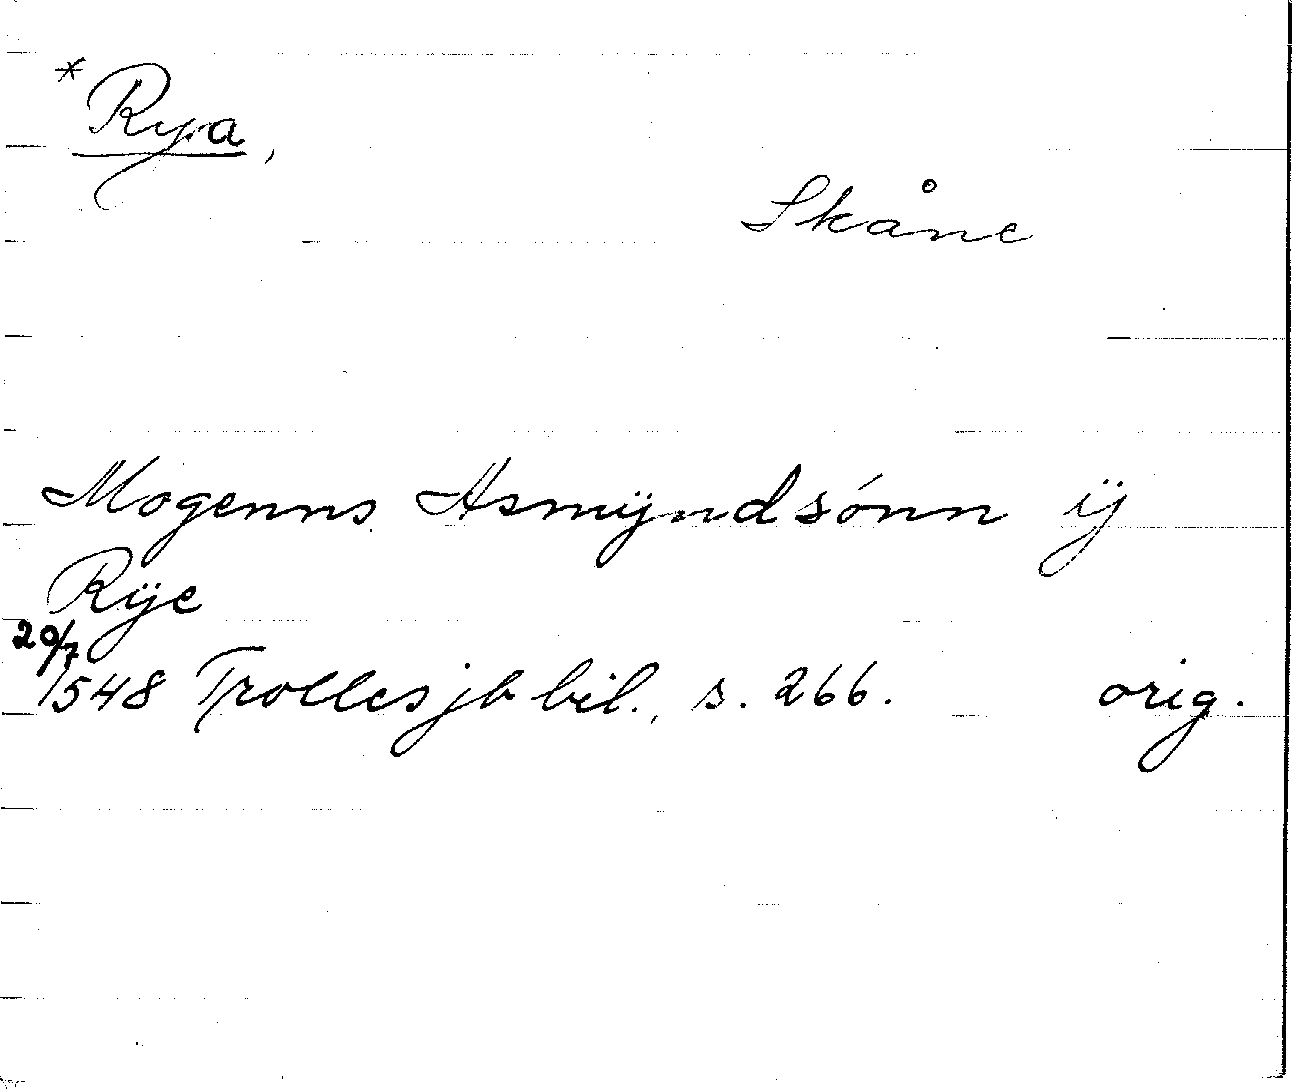 * Rya,
Skåne
Mogenns Asmÿndsónn ÿ
Rÿe
20/7
1548 Trolles jb bil., s. 266. orig.